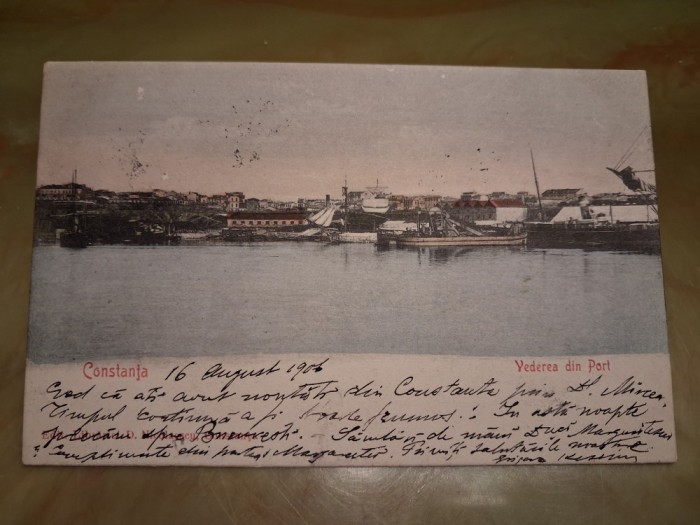 Constanţa 16 August 1906 Vederea din Port
Cred că aţi avut noutăţi din Constanţa prin D. Mircea.
Timpul continuă a fi foarte frumos. În astă noapte
plecăm spre Bucureşti. – Sărutări de mâini Duei Margaritescu
şi complimente din partea Margaretei. Primiţi salutările noastre.